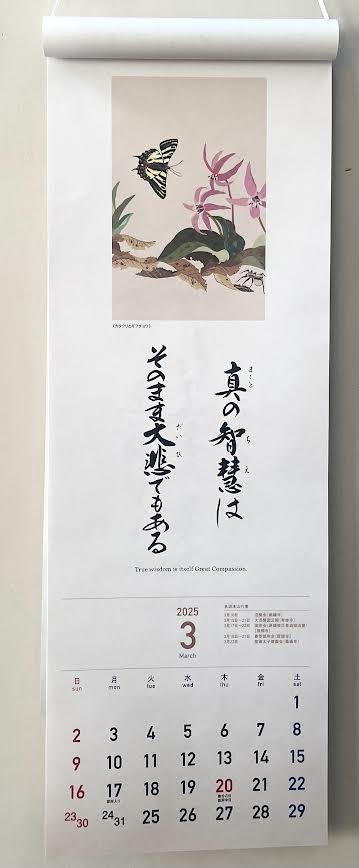 (カタクリとギフチョウ)
真の智慧は
まこと
ちえ
そのまま大悲でもある
だいひ
True wisdom is itself Great Compassion.
2025
3
March
日 月 火 水 木 金 土
sun mon tue wed thu fri sat
1
2 3 4 5 6 7 8
9 10 11 12 13 14 15
16 17 18 19 20 21 22
彼岸入り 春分の日
23/30 24/31 25 26 27 28 29